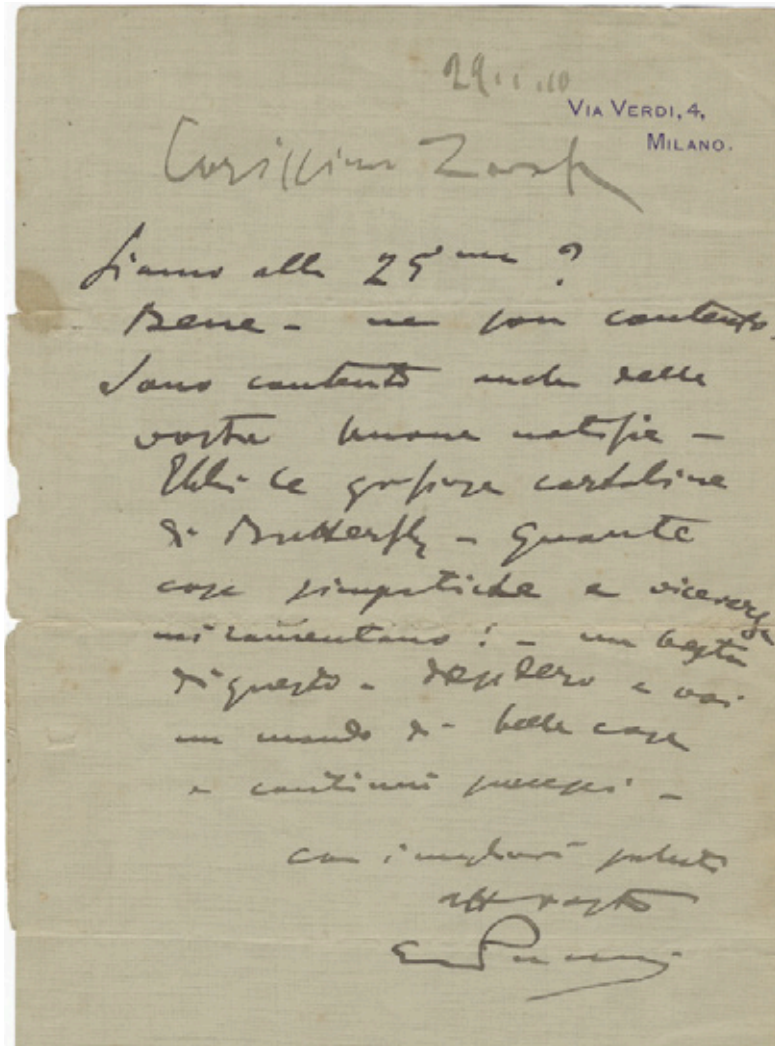 29.1.10
VIA VERDI, 4,
MILANO.
Carissimo
Siamo alla 25ma?
Bene - ne son contento.
Sono contento anche delle
vostre buone notizie -
Ebbi le graziose cartoline
di Butterfly - Quante
cose simpatiche e viceversa
mi rammentano! - ma basta
di questo - desidero a voi
un mondo di belle cose
e continui successi -
con i migliori saluti
aff vostro
Puccini